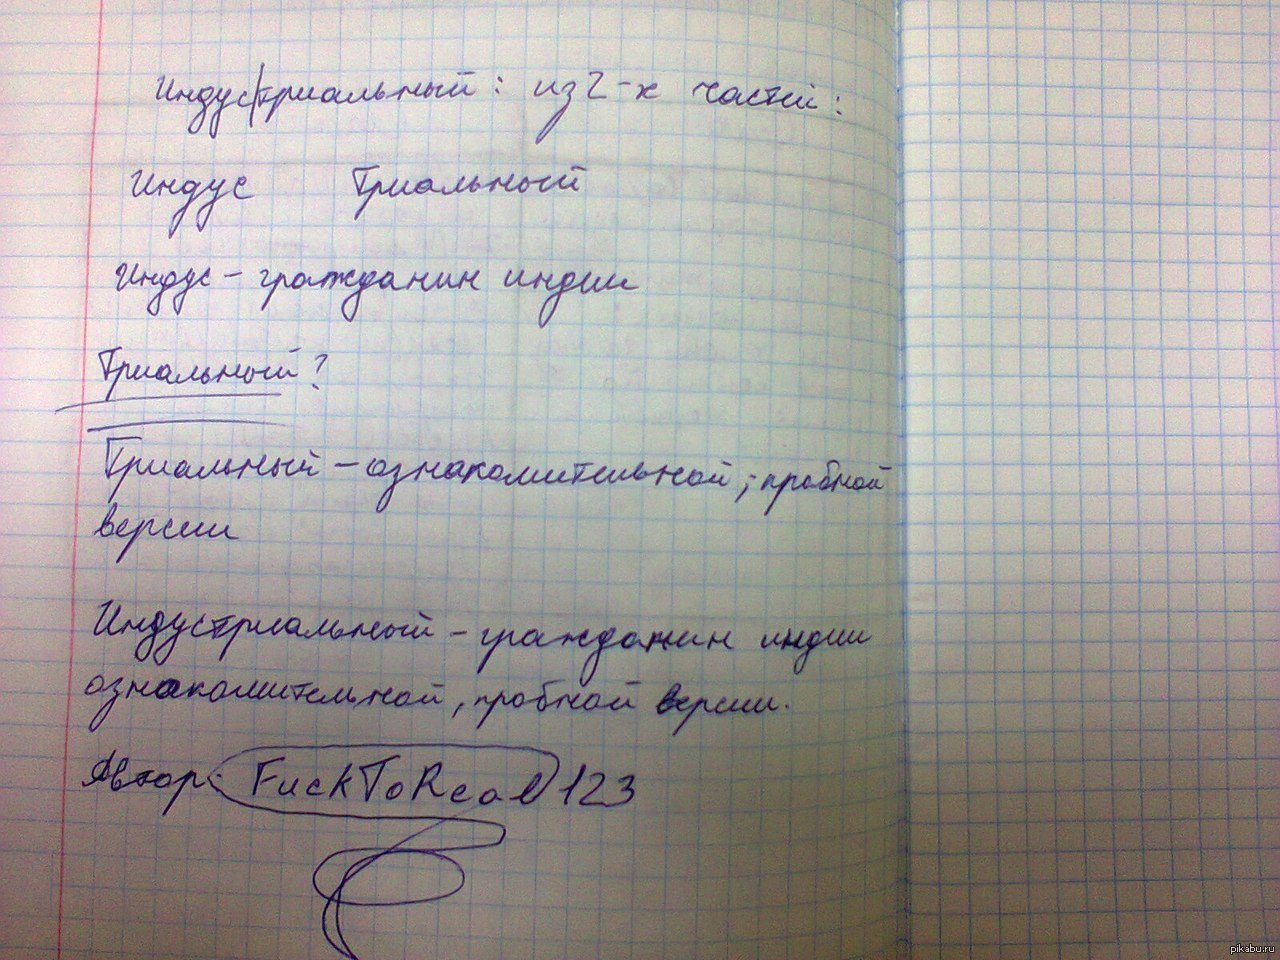 Индус|триальный: из 2-х частей:
Индус Триальный
Индус - гражданин индии
Триальный?
Триальный - ознакомительной, пробной
версии
Индустриальный - гражданин индии
ознакомительной, пробной версии.
Автор: FuckToReal123
pikabu.ru